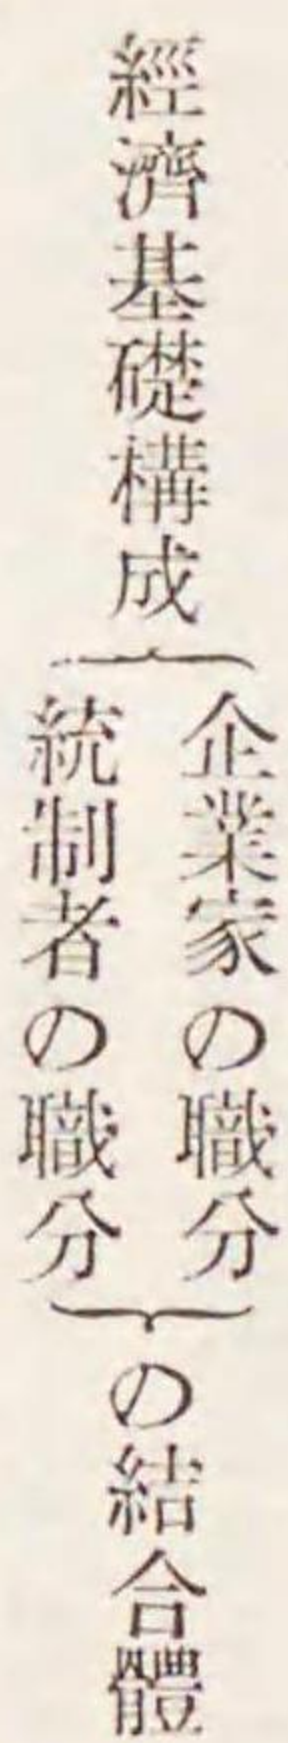 經濟基礎構成
企業家の職分
統制者の職分
の結合體